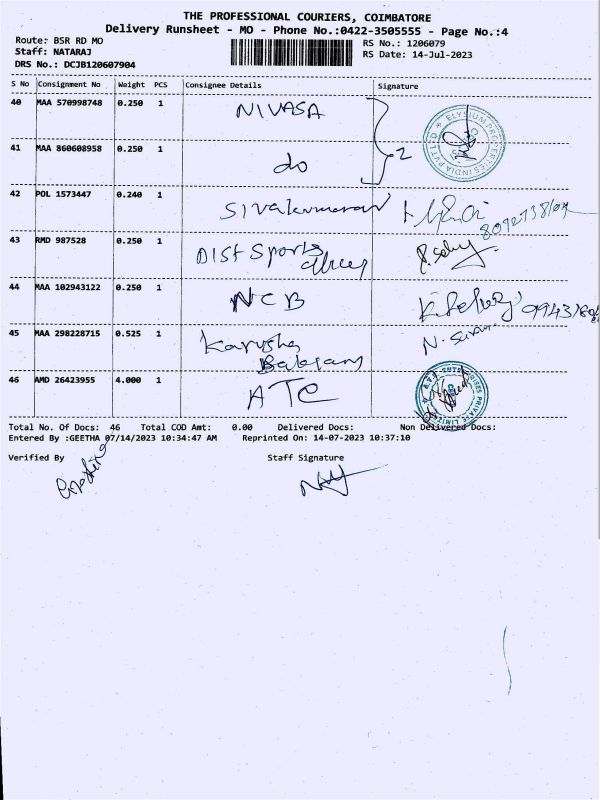 THE PROFESSIONAL COURIERS, COIMBATORE
Delivery Runsheet - MO - Phone No.:0422-3505555 - Page No.:4
Route: BSR RD MO
Staff: NATARAJ
DRS No.: DCJB120607904
RS No.: 1206079
RS Date: 14-Jul-2023
S No Consignment No Weight PCS Consignee Details Signature
40 MAA 570998748 0.250 1 NIVASA
41 MAA 860608958 0.250 1 do 2
42 POL 1573447 0.240 1 Sivakumaran
43 RMD 987528 0.250 1 DIST Sports
44 MAA 102943122 0.250 1 NCB
45 MAA 298228715 0.525 1
46 AMD 26423955 4.000 1 ATC
Total No. Of Docs: 46 Total COD Amt: 0.00 Delivered Docs: Non Delivered Docs:
Entered By :GEETHA 07/14/2023 10:34:47 AM Reprinted On: 14-07-2023 10:37:10
Verified By Staff Signature